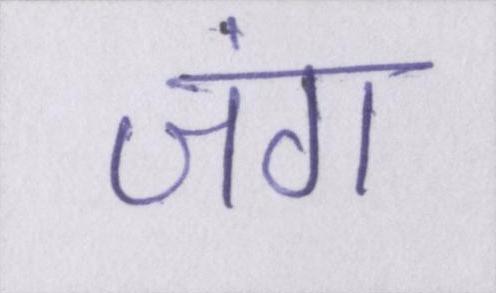 जंग